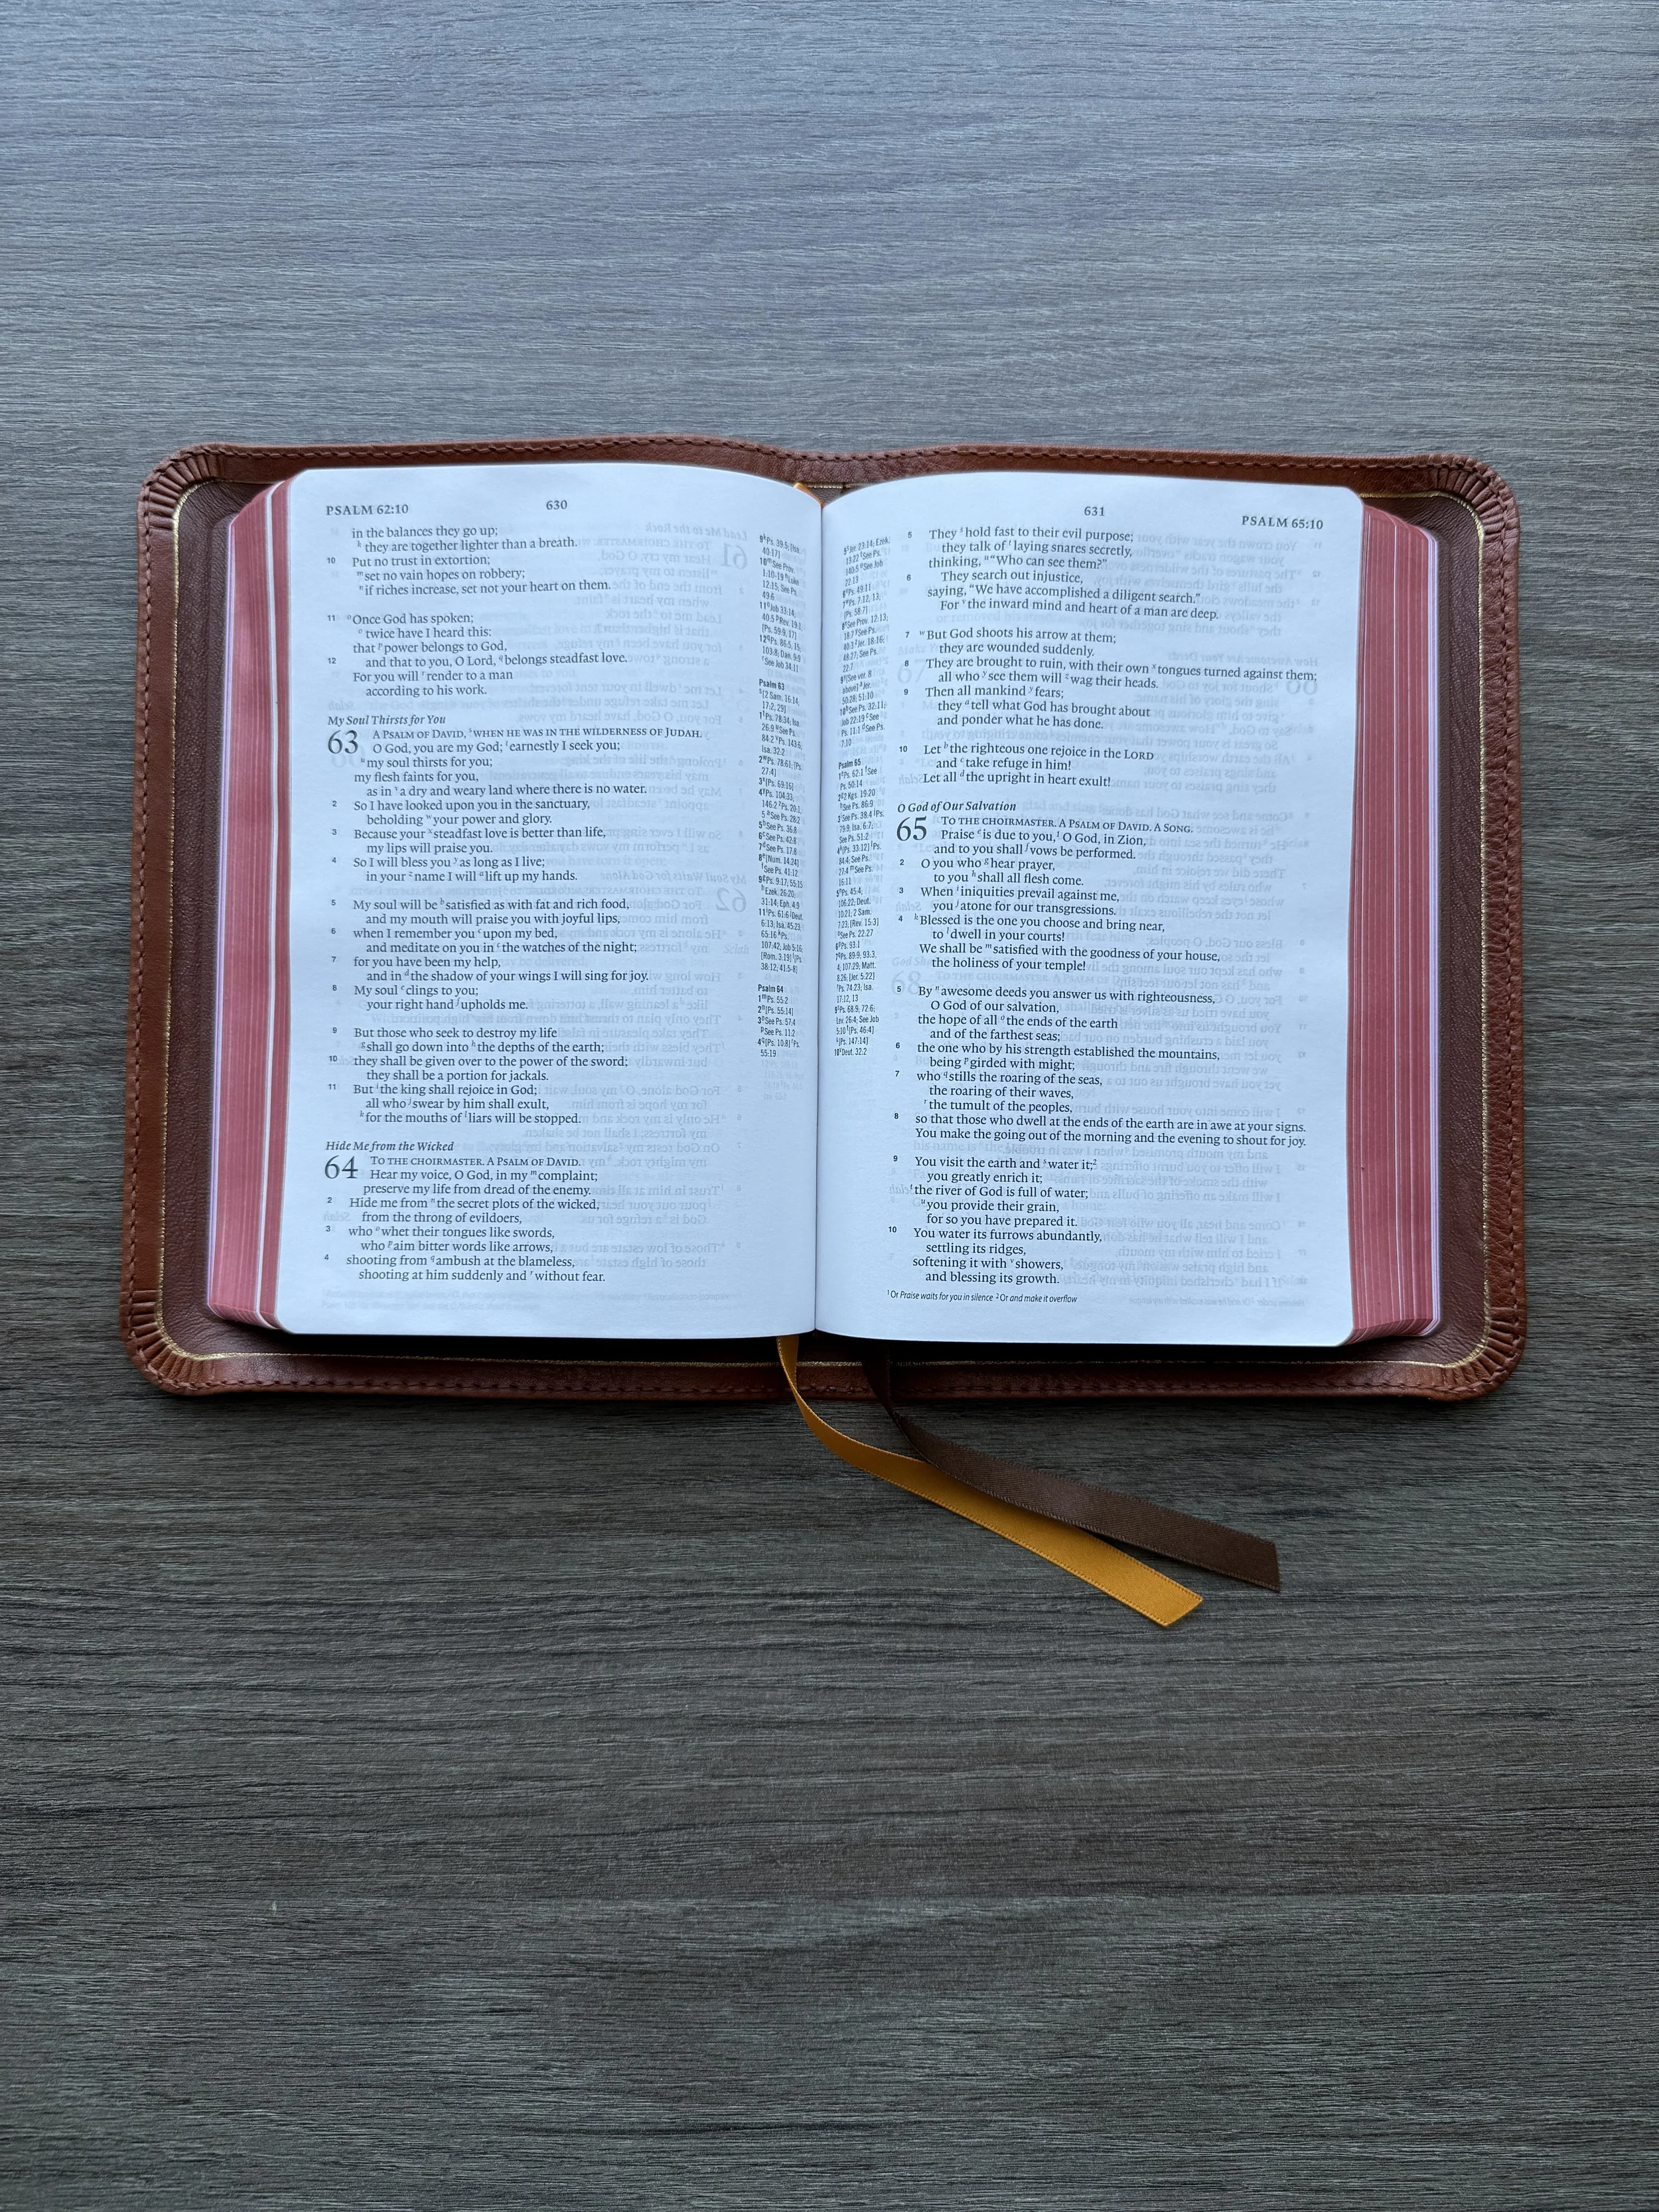 PSALM 62:10
630
in the balances they go up;
k they are together lighter than a breath.
10 Put no trust in extortion;
m set no vain hopes on robbery;
n if riches increase, set not your heart on them.
11 o Once God has spoken;
o twice have I heard this:
that p power belongs to God,
12 and that to you, O Lord, q belongs steadfast love.
For you will r render to a man
according to his work.
My Soul Thirsts for You
63 A PSALM OF DAVID, s WHEN HE WAS IN THE WILDERNESS OF JUDAH.
O God, you are my God; t earnestly I seek you;
u my soul thirsts for you;
my flesh faints for you,
as in v a dry and weary land where there is no water.
2 So I have looked upon you in the sanctuary,
beholding w your power and glory.
3 Because your x steadfast love is better than life,
my lips will praise you.
4 So I will bless you y as long as I live;
in your z name I will a lift up my hands.
5 My soul will be b satisfied as with fat and rich food,
and my mouth will praise you with joyful lips,
6 when I remember you c upon my bed,
and meditate on you in c the watches of the night;
7 for you have been my help,
and in d the shadow of your wings I will sing for joy.
8 My soul e clings to you;
your right hand f upholds me.
9 But those who seek to destroy my life
g shall go down into h the depths of the earth;
10 they shall be given over to the power of the sword;
they shall be a portion for jackals.
11 But i the king shall rejoice in God;
all who j swear by him shall exult,
k for the mouths of l liars will be stopped.
Hide Me from the Wicked
64 TO THE CHOIRMASTER. A PSALM OF DAVID.
Hear my voice, O God, in my m complaint;
preserve my life from dread of the enemy.
2 Hide me from n the secret plots of the wicked,
from the throng of evildoers,
3 who o whet their tongues like swords,
who p aim bitter words like arrows,
4 shooting from q ambush at the blameless,
shooting at him suddenly and r without fear.
Psalm 63
Psalm 64
1 m Ps. 55:2
2 n [Ps. 55:14]
3 o See Ps. 57:4
p See Ps. 11:2
4 q [Ps. 10:8] r Ps.
55:19
631
PSALM 65:10
5 They s hold fast to their evil purpose;
they talk of t laying snares secretly,
thinking, u "Who can see them?"
6 They search out injustice,
saying, "We have accomplished a diligent search."
For v the inward mind and heart of a man are deep.
7 w But God shoots his arrow at them;
they are wounded suddenly.
8 They are brought to ruin, with their own x tongues turned against them;
all who y see them will z wag their heads.
9 Then all mankind y fears;
they a tell what God has brought about
and ponder what he has done.
10 Let b the righteous one rejoice in the LORD
and c take refuge in him!
Let all d the upright in heart exult!
O God of Our Salvation
65 TO THE CHOIRMASTER. A PSALM OF DAVID. A SONG.
Praise e is due to you, 1 O God, in Zion,
and to you shall f vows be performed.
2 O you who g hear prayer,
to you h shall all flesh come.
3 When i iniquities prevail against me,
you j atone for our transgressions.
4 k Blessed is the one you choose and bring near,
to l dwell in your courts!
We shall be m satisfied with the goodness of your house,
the holiness of your temple!
5 By n awesome deeds you answer us with righteousness,
O God of our salvation,
the hope of all o the ends of the earth
and of the farthest seas;
6 the one who by his strength established the mountains,
being p girded with might;
7 who q stills the roaring of the seas,
the roaring of their waves,
r the tumult of the peoples,
8 so that those who dwell at the ends of the earth are in awe at your signs.
You make the going out of the morning and the evening to shout for joy.
9 You visit the earth and s water it; 2
you greatly enrich it;
t the river of God is full of water;
u you provide their grain,
for so you have prepared it.
10 You water its furrows abundantly,
settling its ridges,
softening it with v showers,
and blessing its growth.
Psalm 65
1 Or Praise waits for you in silence 2 Or and make it overflow